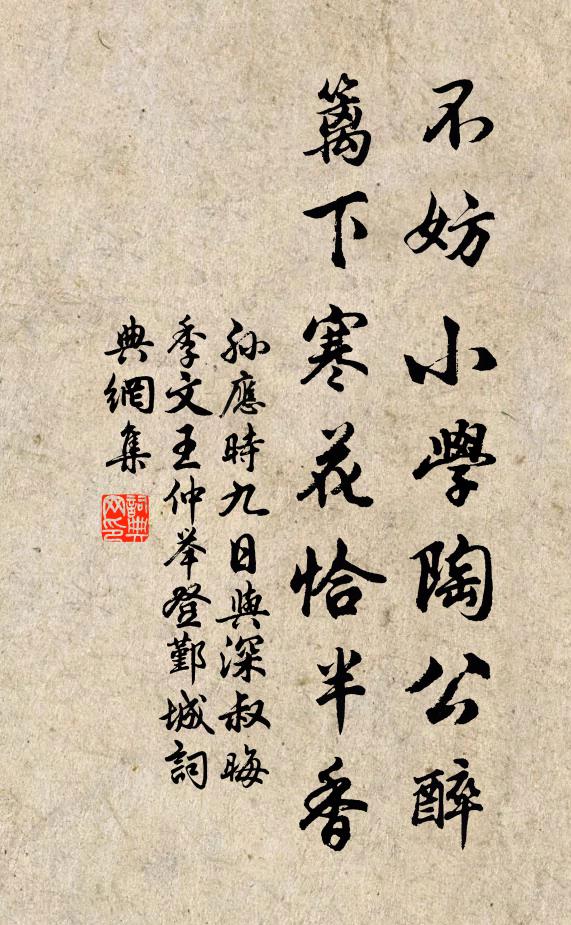 不妨小學陶公醉
篱下寒花恰半香
孙應時九日與深叔晦
季文王仲举登鄞城詞
典網集
詞典網印